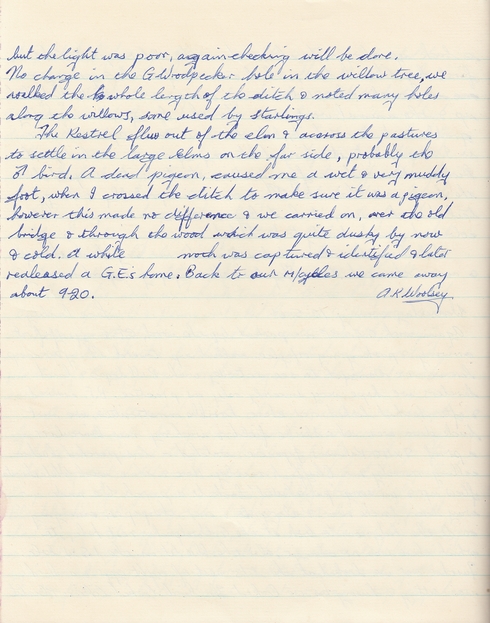 but the light was poor, again checking will be done.
No change in the G Woodpecker hole in the willow tree, we
walked the whole length of the ditch & noted many holes
along the willows, some used by starlings.
The Kestrel flew out of the elm & accross the pastures
to settle in the large elms on the far side, probably the
♂ bird. A dead pigeon, caused me a wet & very muddy
foot, when I crossed the ditch to make sure it was a pigeon,
however this made no difference & we carried on, over the old
bridge & through the wood which was quite dusky by now
& cold. A white moth was captured & identified & later
realeased a G.E's home. Back to our M/cycles we came away
about 9-20. A.K Woolsey.